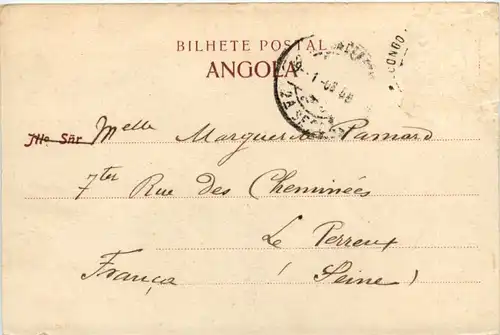 BILHETE POSTAL
ANGOLA
CONGO
Illo Snr Melle Marguerite Pamard
7ter Rue des Cheminées
Le Perreux
França (Seine)